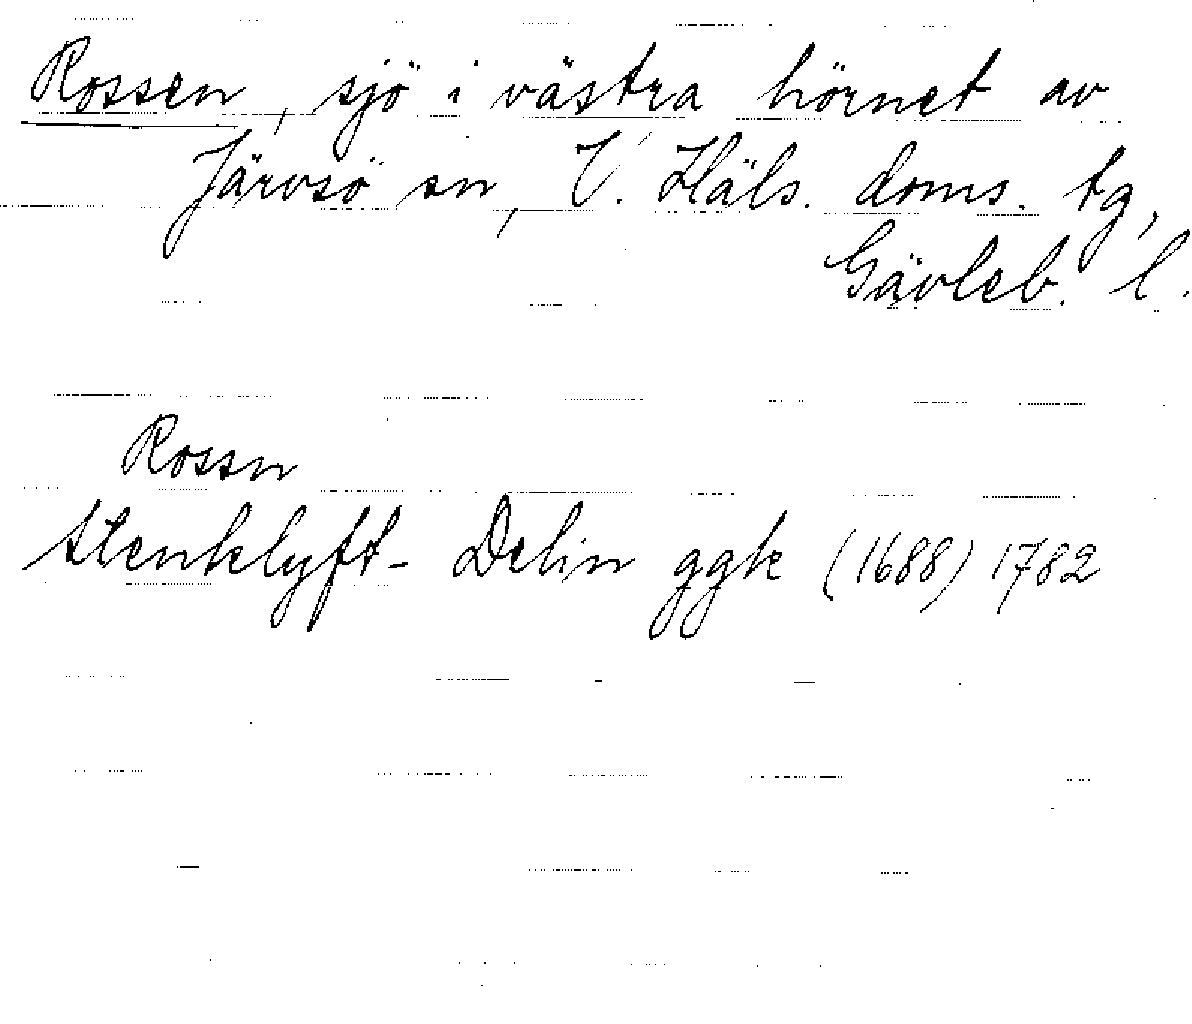 Rossen, sjö i västra hörnet av
Järvsö sn, V. Häls. doms. tg,
Gävleb. l.
Rossn
Stenklyft- Delin ggk (1688) 1782